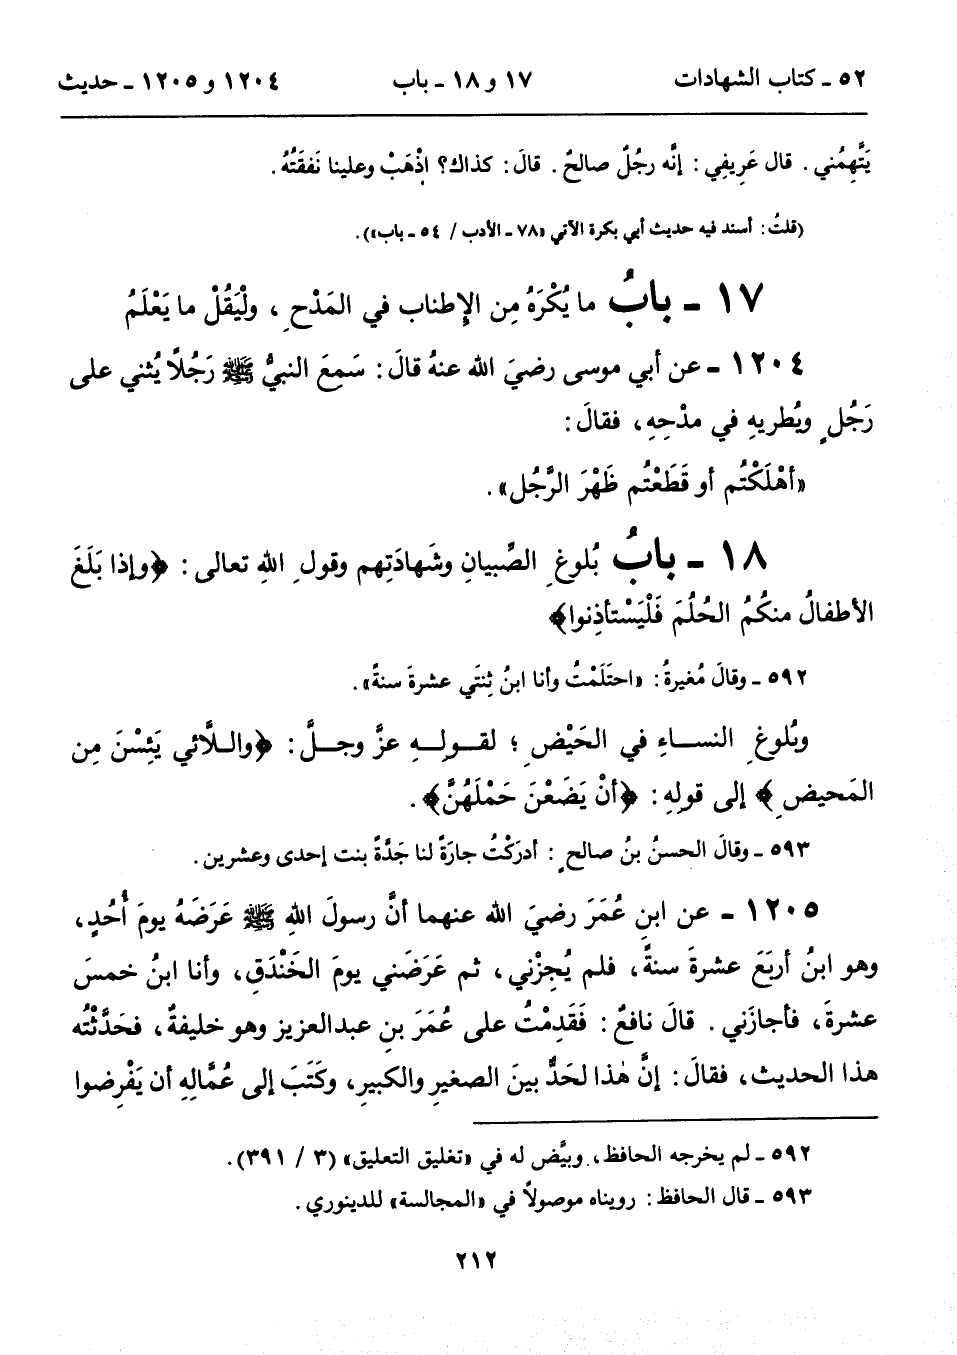 ٥٢ ـ كتاب الشهادات ١٧ و ١٨ ـ باب ١٢٠٤ و ١٢٠٥ ـ حديث
يَتَّهِمُني . قال عَرِيفِي : إنَّه رجُلٌ صالحٌ . قالَ : كذاك؟ اذْهَبْ وعلينا نَفَقَتُهُ .
(قلتُ : أسند فيه حديث أبي بكرة الآتي «٧٨ ـ الأدب / ٥٤ ـ باب») .
١٧ ـ بابُ ما يُكْرَهُ مِن الإِطناب في المَدْحِ ، ولْيَقُلْ ما يَعْلَمُ
١٢٠٤ ـ عن أبي موسى رضيَ الله عنهُ قالَ : سَمِعَ النبيُّ ﷺ رَجُلًا يُثني على
رَجُلٍ ويُطريهِ في مدْحِهِ ، فقالَ :
«أهْلَكْتُم أو قَطَعْتُم ظَهْرَ الرَّجُلِ» .
١٨ ـ بابُ بُلوغِ الصِّبيانِ وشَهادَتِهم وقولِ اللهِ تعالى : ﴿وإذا بَلَغَ
الأطفالُ منكُمُ الحُلُمَ فَلْيَسْتأذِنوا﴾
٥٩٢ ـ وقالَ مُغيرةُ : «احتَلَمْتُ وأنا ابنُ ثِنتَي عشرةَ سنةً» .
وبُلوغِ النساءِ في الحَيْضِ ؛ لقولِهِ عزَّ وجلَّ : ﴿واللَّائي يَئِسْنَ مِن
المَحيضِ﴾ إلى قولِهِ : ﴿أنْ يَضَعْنَ حَمْلَهُنَّ﴾ .
٥٩٣ ـ وقالَ الحسنُ بنُ صالحٍ : أدرَكْتُ جارَةً لنا جَدَّةً بنت إحدى وعشرين .
١٢٠٥ ـ عن ابنِ عُمَرَ رضيَ الله عنهما أنَّ رسولَ اللهِ ﷺ عَرَضَهُ يومَ أُحُدٍ ،
وهو ابنُ أربَعَ عشرةَ سنةً ، فلم يُجِزْني ، ثم عَرَضَني يومَ الخَنْدَقِ ، وأنا ابنُ خمسَ
عشرةَ ، فأجازَني . قالَ نافعٌ : فَقَدِمْتُ على عُمَرَ بنِ عبدالعزيز وهو خليفةٌ ، فحَدَّثْتُه
هذا الحديث ، فقالَ : إنَّ هٰذا لحَدٌّ بينَ الصغيرِ والكبيرِ ، وكَتَبَ إلى عُمَّالِهِ أن يَفْرِضوا
٥٩٢ ـ لم يخرجه الحافظ ، وبيَّض له في «تغليق التعليق» (٣ / ٣٩١) .
٥٩٣ ـ قال الحافظ : رويناه موصولاً في «المجالسة» للدينوري .
٢١٢